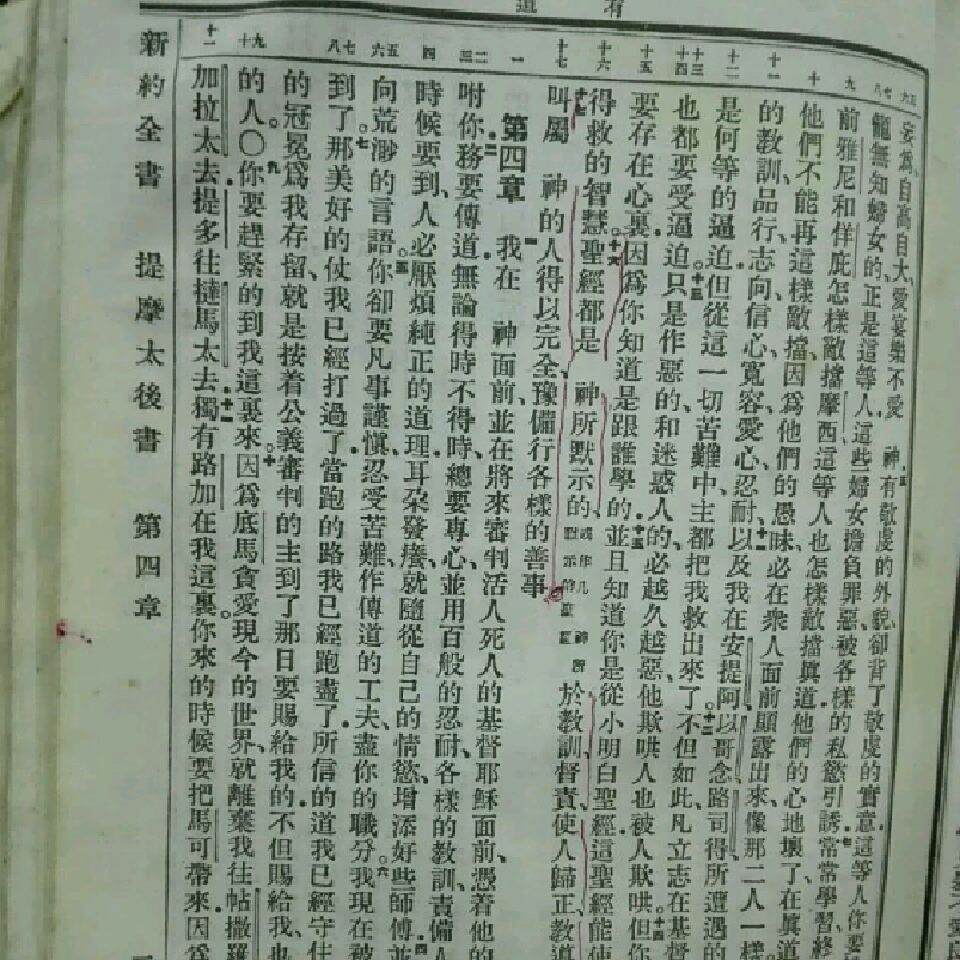 妄爲、自高自大、愛宴樂不愛 神、有敬虔的外貌、卻背了敬虔的實意、這等人你要
籠無知婦女的、正是這等人、這些婦女擔負罪惡、被各樣的私慾引誘、常常學習、終
前雅尼和佯庇怎樣敵擋摩西、這等人也怎樣敵擋眞道、他們的心地壞了、在眞道
他們不能再這樣敵擋、因爲他們的愚昧、必在衆人面前顯露出來、像那二人一樣。
的教訓、品行、志向、信心、寬容、愛心、忍耐、以及我在安提阿以哥念路司得所遭遇的
是何等的逼迫、但從這一切苦難中、主都把我救出來了。不但如此、凡立志在基督
也都要受逼迫。只是作惡的、和迷惑人的、必越久越惡、他欺哄人、也被人欺哄、但你
要存在心裏、因爲你知道是跟誰學的、並且知道你是從小明白聖經、這聖經能使
得救的智慧。聖經都是 神所默示的、於教訓、督責、使人歸正、教導
叫屬 神的人得以完全、豫備行各樣的善事
第四章 我在 神面前、並在將來審判活人死人的基督耶穌面前、憑着他的
咐你、務要傳道、無論得時不得時、總要專心、並用百般的忍耐、各樣的教訓、責備人
時候要到、人必厭煩純正的道理、耳朶發癢、就隨從自己的情慾、增添好些師傅、並
向荒渺的言語。你卻要凡事謹愼、忍受苦難、作傳道的工夫、盡你的職分。我現在被
到了。那美好的仗我已經打過了、當跑的路我已經跑盡了、所信的道我已經守住
的冠冕爲我存留、就是按着公義審判的主到了那日要賜給我的、不但賜給我、也
的人〇你要趕緊的到我這裏來。因爲底馬貪愛現今的世界、就離棄我往帖撒羅
加拉太去、提多往撻馬太去、獨有路加在我這裏。你來的時候要把馬可帶來、因爲
新約全書 提摩太後書 第四章